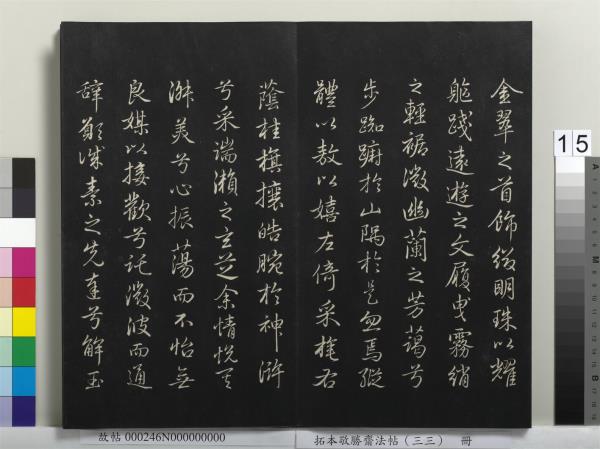 金翠之首飾綴明珠以耀
軀踐遠遊之文履曳霧綃
之輕裾微幽蘭之芳藹兮
步踟蹰於山隅於是忽焉縱
體以敖以嬉左倚采旄右
蔭桂旗攘皓腕於神滸
兮采湍瀨之玄芝余情悅其
淋美兮心振蕩而不怡無
良媒以接歡兮託微波而通
辭願誠素之先達兮解玉
15
故帖 000246N000000000
拓本敬勝齋法帖（三三） 冊